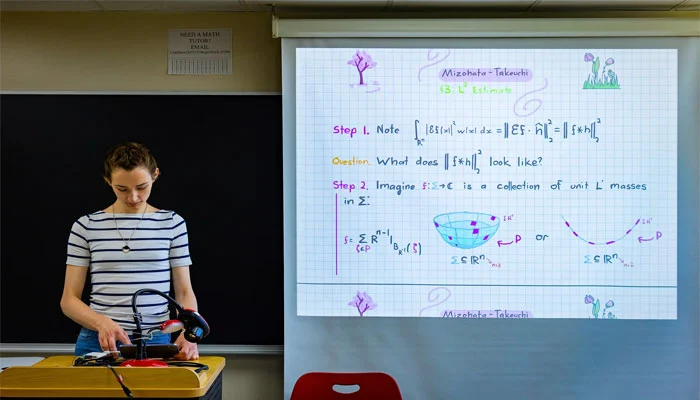 NEED A MATH
TUTOR?
EMAIL
Mizohata-Takeuchi
§3: L² Estimate
Step 1. Note ∫_{ℝⁿ} |Ef(x)|² w(x) dx = ‖Ef · ĥ‖₂² = ‖f*h‖₂²
Question. What does ‖f*h‖₂² look like?
Step 2. Imagine f: Σ→ℂ is a collection of unit L¹ masses
in Σ:
f = Σ_{ζ∈P} R^{n-1} 1_{B_{R⁻¹}(ζ)}
P
or
P
Σ⊆ℝⁿ
n=3
Σ⊆ℝⁿ
n=2
Mizohata-Takeuchi